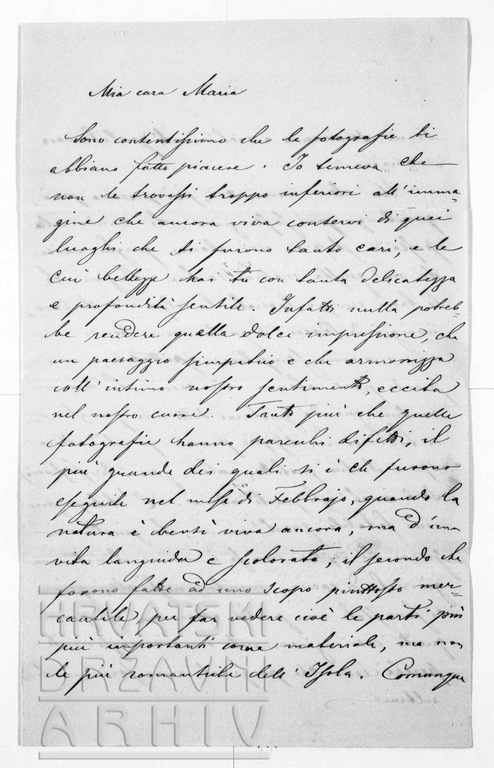 Mia cara Maria
Sono contentissimo che le fotografie ti
abbiano fatto piacere. Io temeva che
non le trovassi troppo inferiori all'imma-
gine che ancora viva conservi di quei
luoghi che ti furono tanto cari, e le
cui bellezze hai tu con tanta delicatezza
e profondità sentite. Infatti nulla potreb-
be rendere quella dolce impressione, che
un paesaggio simpatico e che armonizza
coll'intimo nostro sentimento, eccita
nel nostro cuore. Tanto più che quelle
fotografie hanno parecchi difetti, il
più grande dei quali si è che furono
eseguite nel mese di Febbrajo, quando la
natura è bensì viva ancora, ma d'una
vita languida e scolorata; il secondo che
furono fatte ad uno scopo piuttosto mer-
cantile, per far vedere cioè le parti più
più importanti come materiale, ma non
le più romantiche dell'Isola. Comunque
HRVATSKI
DRŽAVNI
ARHIV